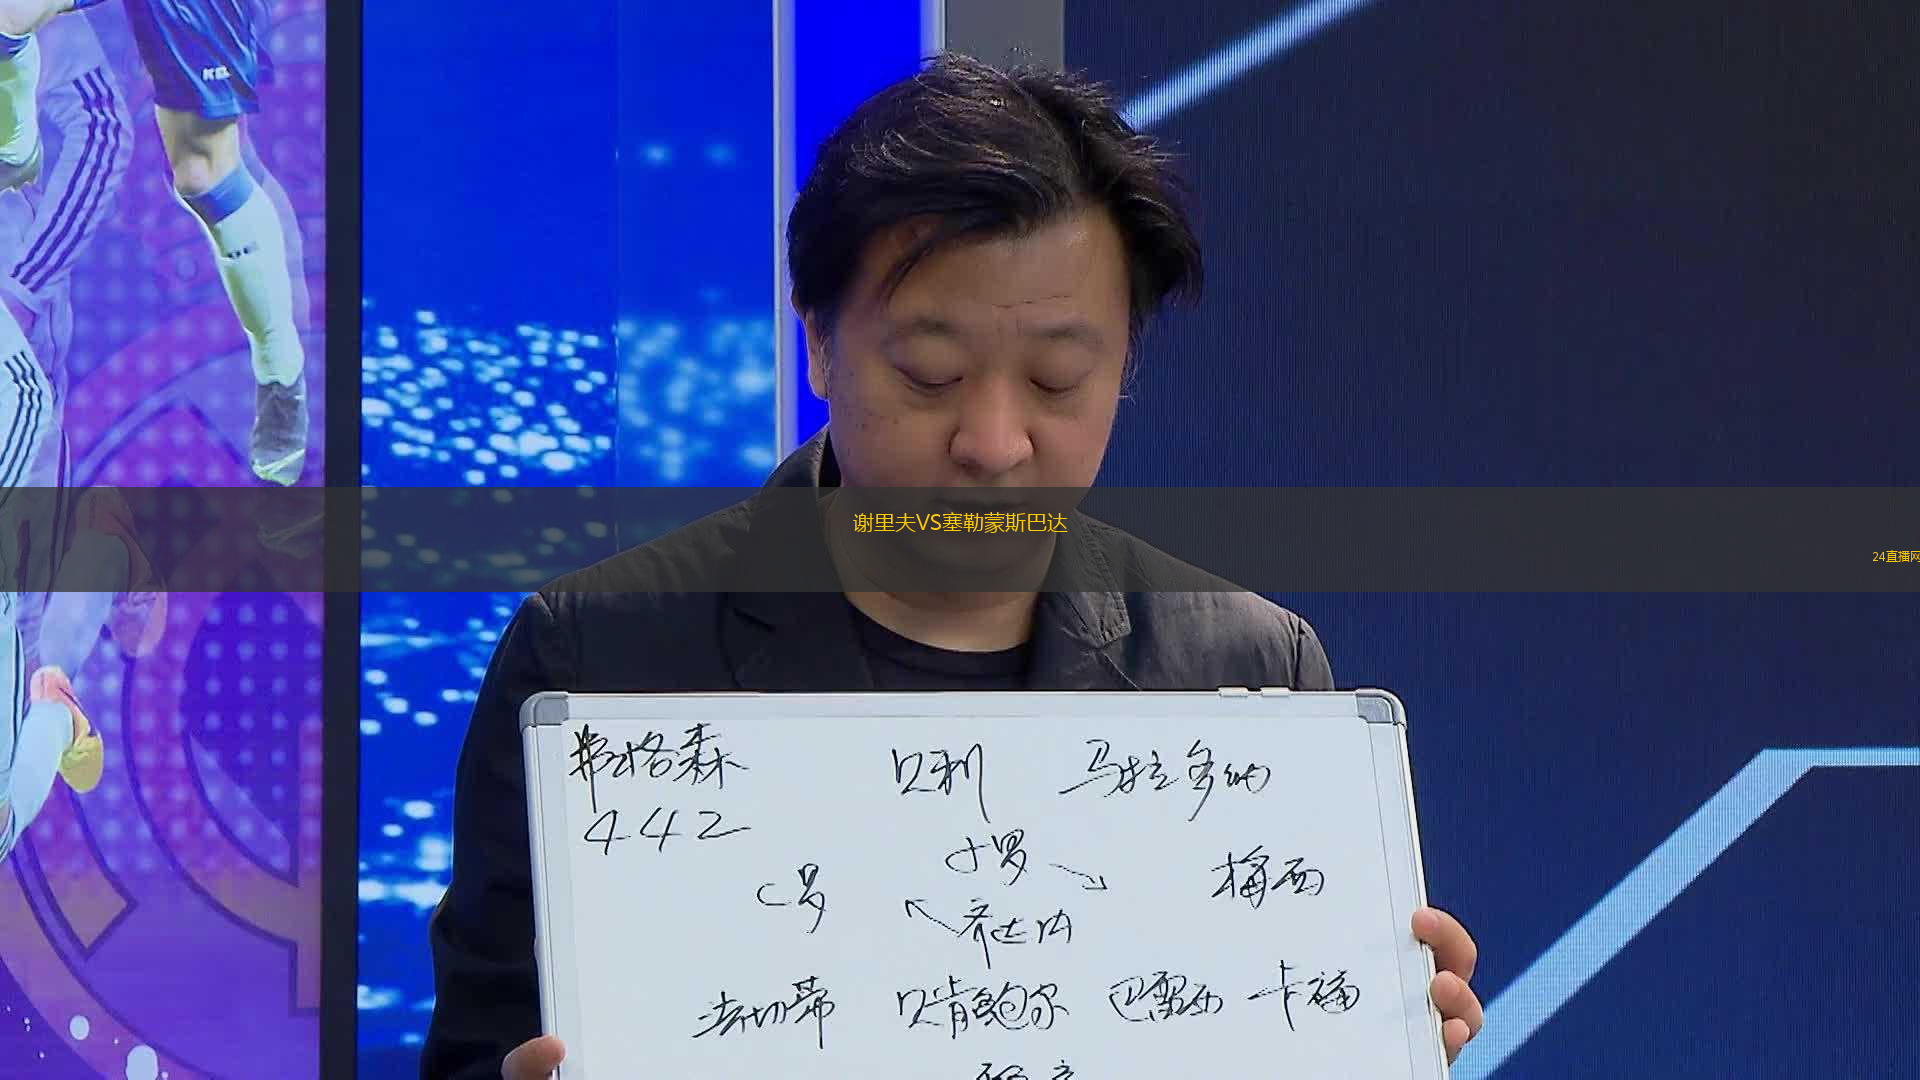 谢里夫VS塞勒蒙斯巴达
24直播网
弗格森 贝利 马拉多纳
442
小罗
C罗 梅西
齐达内
法切蒂 贝肯鲍尔 巴雷西 卡福